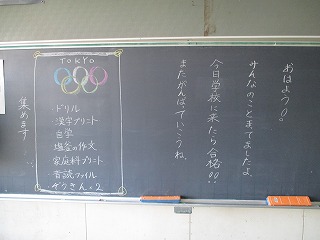 おはよう!!
みんなのことまてましたよ。
今日学校に来たら合格!!
またがんばっていこうね。
TOKYO
ドリル
漢字プリント
自学
塩谷の作文
家庭科プリント
音読ファイル
ぞうきん・2
集めます…